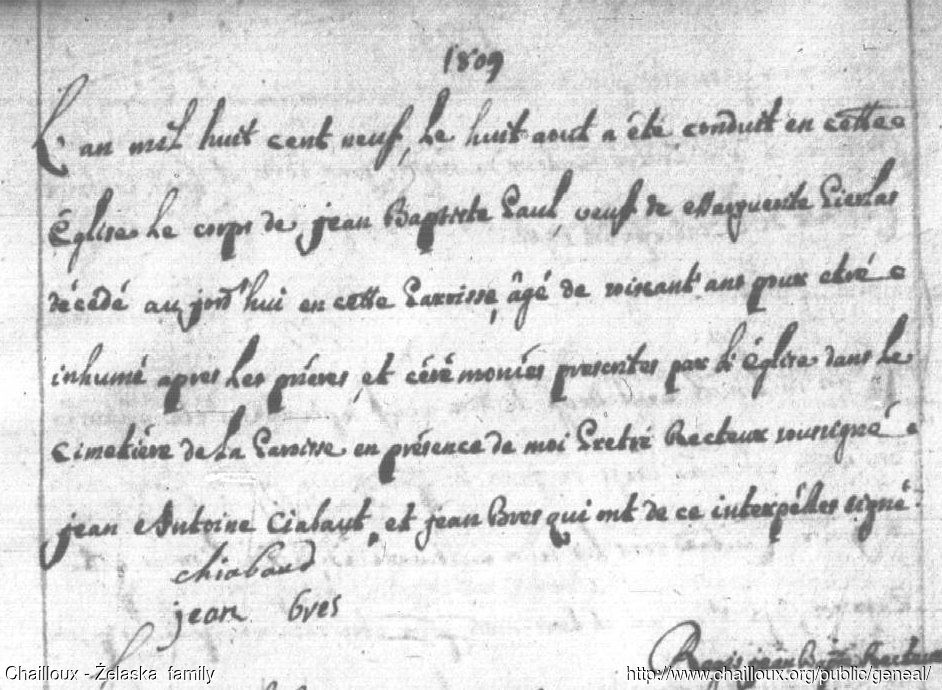 1809
L'an mil huit cent neuf, le huit aout a été conduit en cette
Église le corps de jean Baptiste Paul, veuf de Marguerite Pierlas
décédé aujord'hui en cette Paroisse, âgé de soiseant ans pour etré
inhumé apres les priéres, et cérémoniés prescrites par l'Église dans le
cimetiére de la Paroisse en présence de moi Pretré Recteur soussigné
jean Antoine Ciabaut, et jean Bres qui ont de ce interpéllés signé
chiabaud
jean Bres
jean Recteur
Chailloux - Želaska family
http://www.chailloux.org/public/geneal/